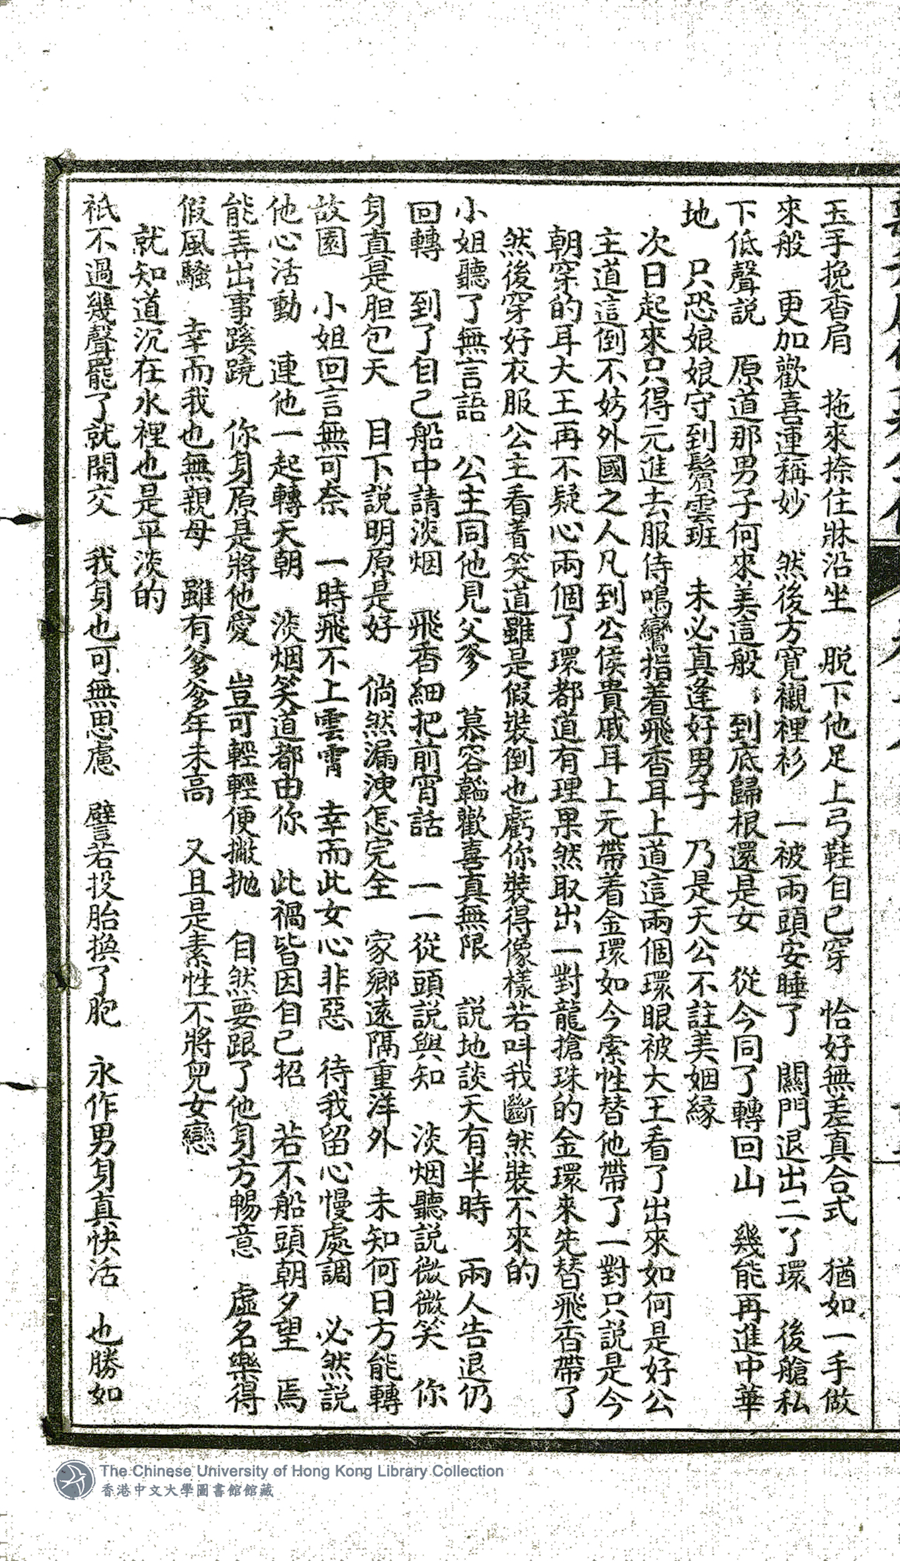 玉手挽香肩　拖來捺住牀沿坐　脫下他足上弓鞋自己穿　恰好無差真合式　猶如一手做
來般　更加歡喜連稱妙　然後方寬襯裡衫　一被兩頭安睡了　關門退出二丫環　後艙私
下低聲説　原道那男子何來美這般　到底歸根還是女　從今同了轉回山　幾能再進中華
地　只恐娘娘守到鬢雲班　未必真逢好男子　乃是天公不註美姻緣
次日起來只得元進去服侍鳴鸞指着飛香耳上道這兩個環眼被大王看了出來如何是好公
主道這倒不妨外國之人凡到公侯貴戚耳上元帶着金環如今索性替他帶了一對只説是今
朝穿的耳大王再不疑心兩個丫環都道有理果然取出一對龍搶珠的金環來先替飛香帶了
然後穿好衣服公主看着笑道雖是假裝倒也虧你裝得像樣若叫我斷然裝不來的
小姐聽了無言語　公主同他見父爹　慕容韜歡喜真無限　説地談天有半時　兩人告退仍
回轉　到了自己船中請淡烟　飛香細把前宵話　一一從頭說與知　淡烟聽説微微笑　你
身真是胆包天　目下説明原是好　倘然漏洩怎完全　家鄉遠隔重洋外　未知何日方能轉
故園　小姐回言無可奈　一時飛不上雲霄　幸而此女心非惡　待我留心慢處調　必然説
他心活動　連他一起轉天朝　淡烟笑道都由你　此禍皆因自己招　若不船頭朝夕望　焉
能弄出事蹊蹺　你身原是將他愛　豈可輕輕便撇拋　自然要跟了他身方暢意　虛名樂得
假風騷　幸而我也無親母　雖有爹爹年未高　又且是素性不將兒女戀
就知道沉在水裡也是平淡的
祇不過幾聲罷了就開交　我身也可無思慮　譬若投胎換了胞　永作男身真快活　也勝如
The Chinese University of Hong Kong Library Collection
香港中文大學圖書館館藏